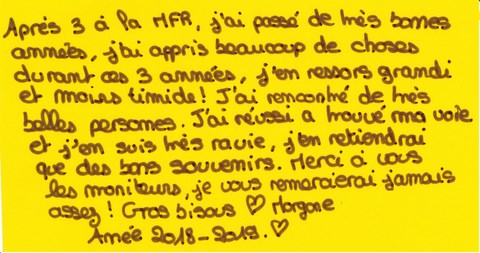 Après 3 à la MFR, j'ai passé de très bonnes
années, j'ai appris beaucoup de choses
durant ces 3 années, j'en ressors grandi
et moins timide! J'ai rencontré de très
belles personnes. J'ai réussi a trouvé ma voie
et j'en suis très ravie, j'en retiendrai
que des bons souvenirs. Merci à vous
les moniteurs, je vous remercierai jamais
assez! Gros bisous ♡ Morgane
Année 2018-2019. ♡